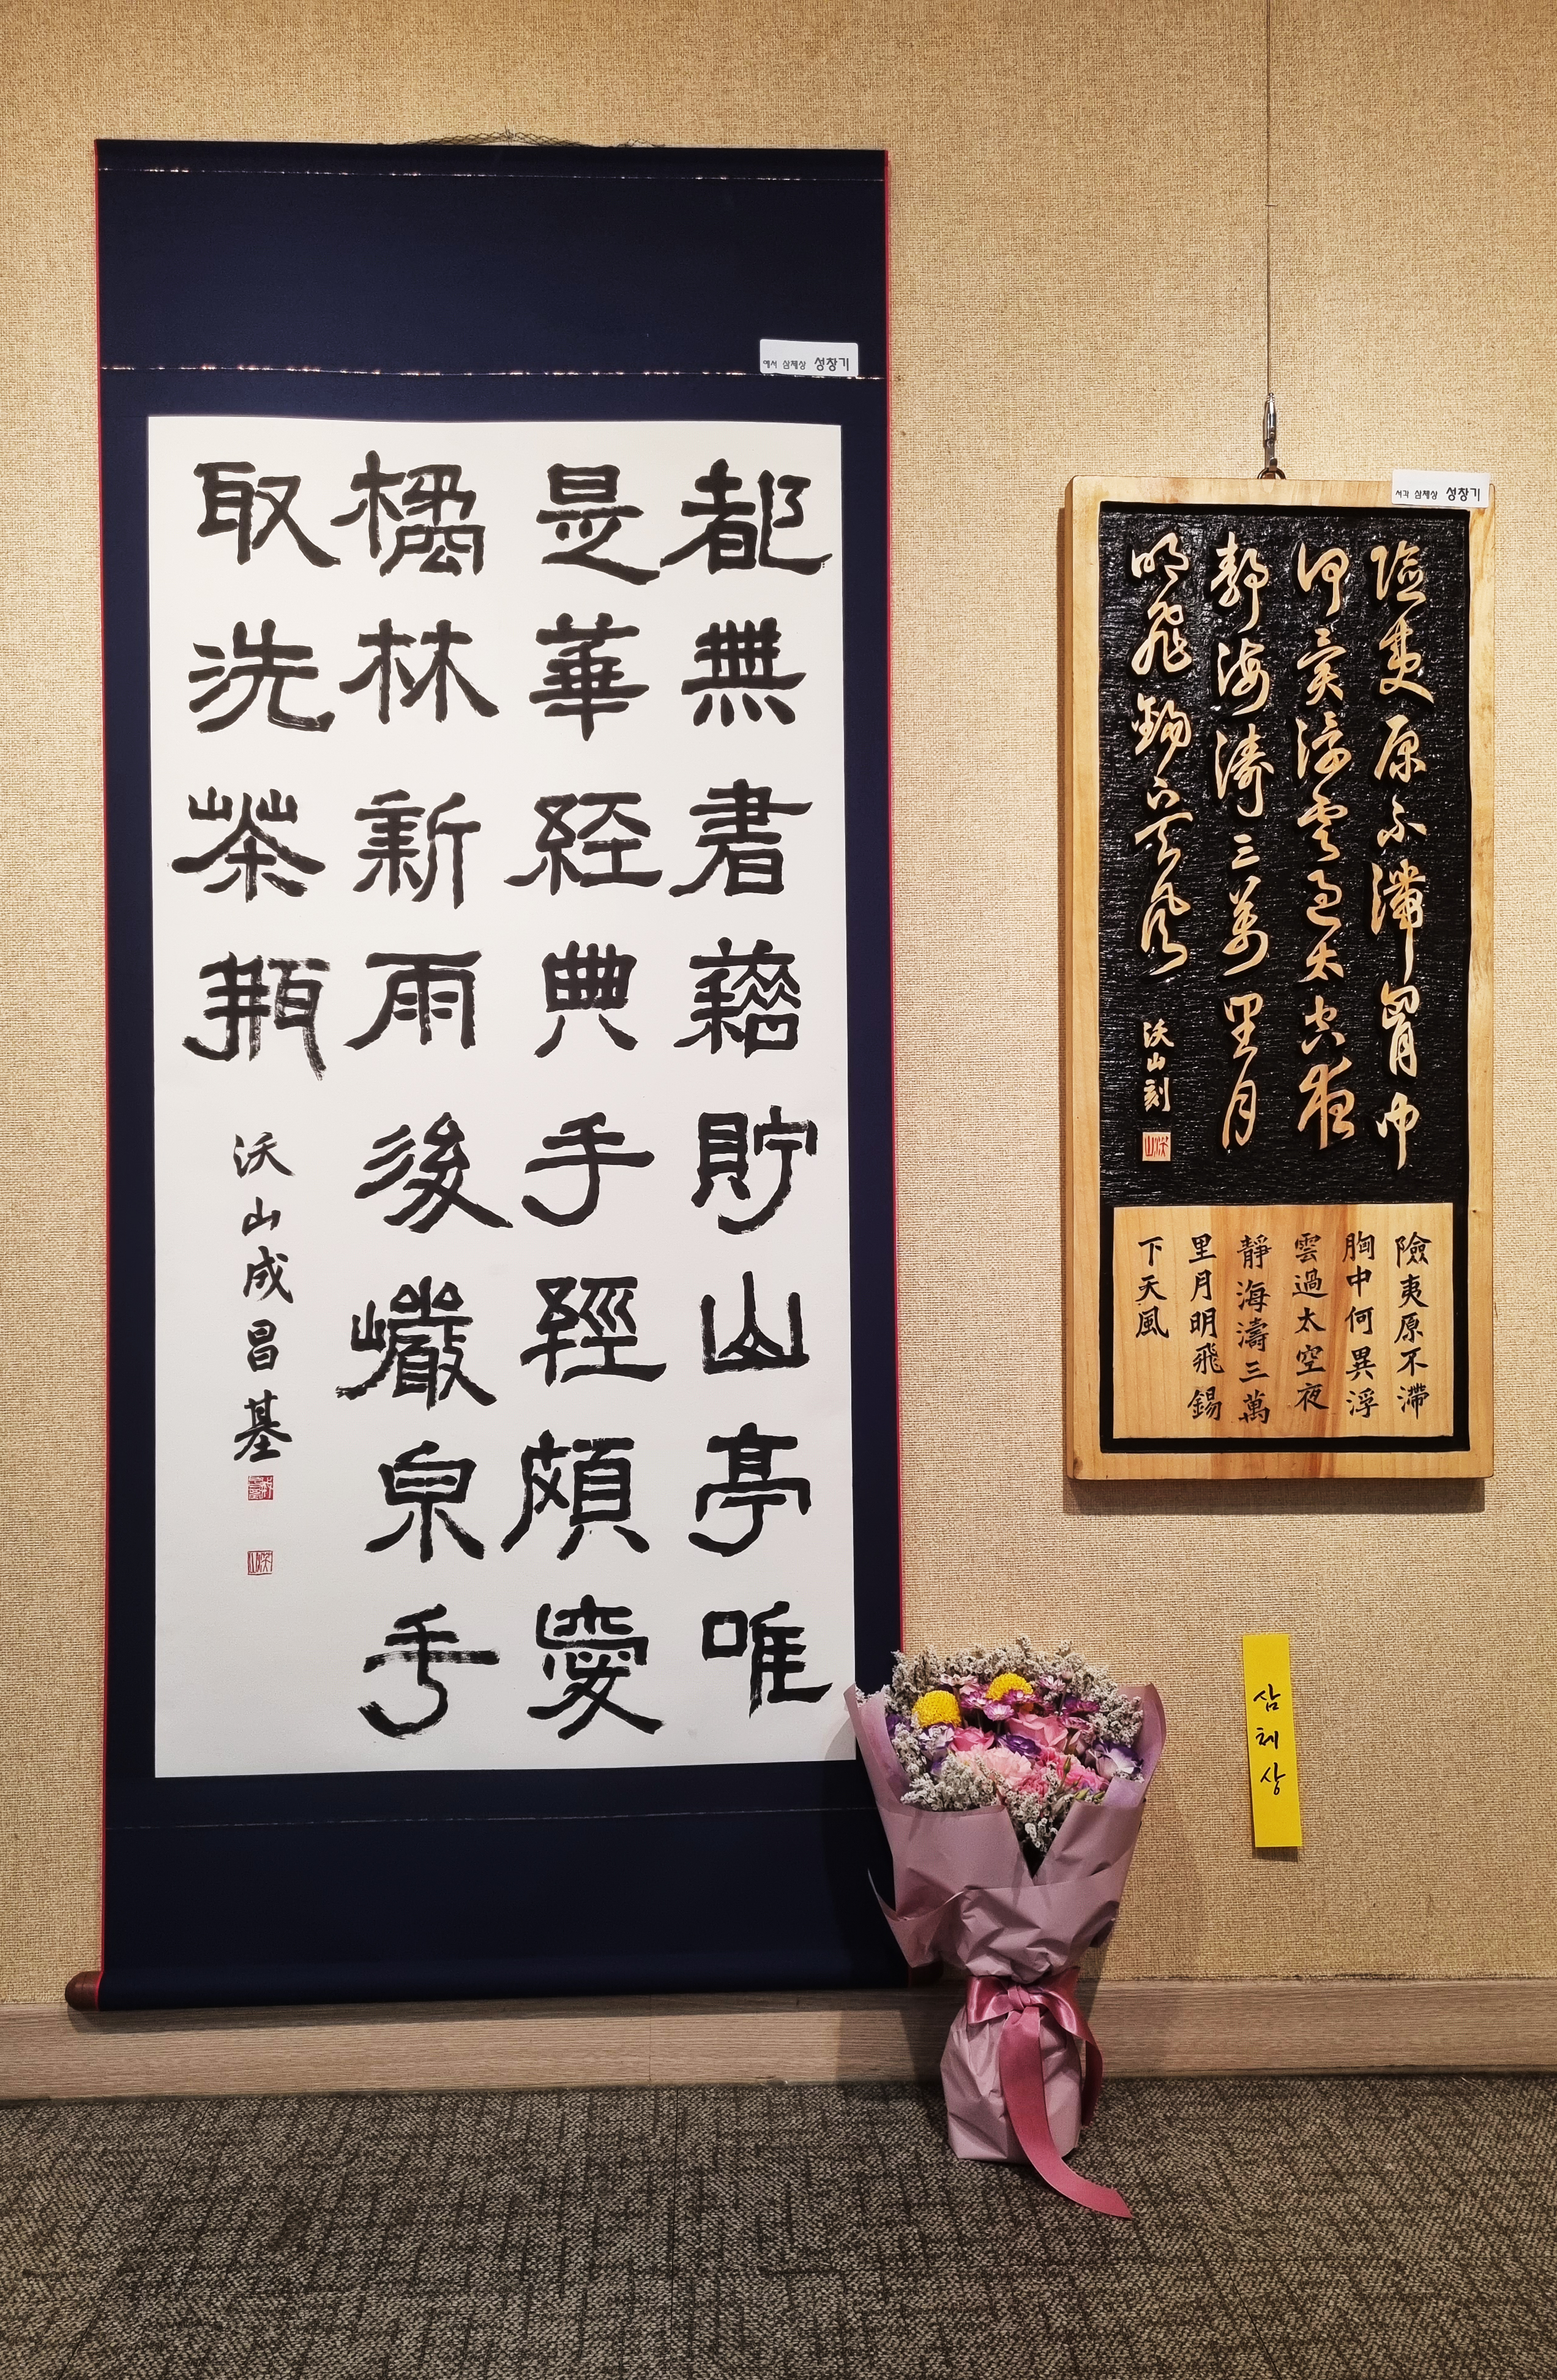 예서 삼체상 성창기
都無書藉貯山亭唯
是華経典手經頗愛
橘林新雨後巖泉手
取洗茶瓶
沃山成昌基
서각 삼체상 성창기
險夷原不滯胸中
何異浮雲過太空夜
靜海濤三萬里月
明飛錫下天風
沃山刻
沃山
險夷原不滯
胸中何異浮
雲過太空夜
靜海濤三萬
里月明飛錫
下天風
삼체상